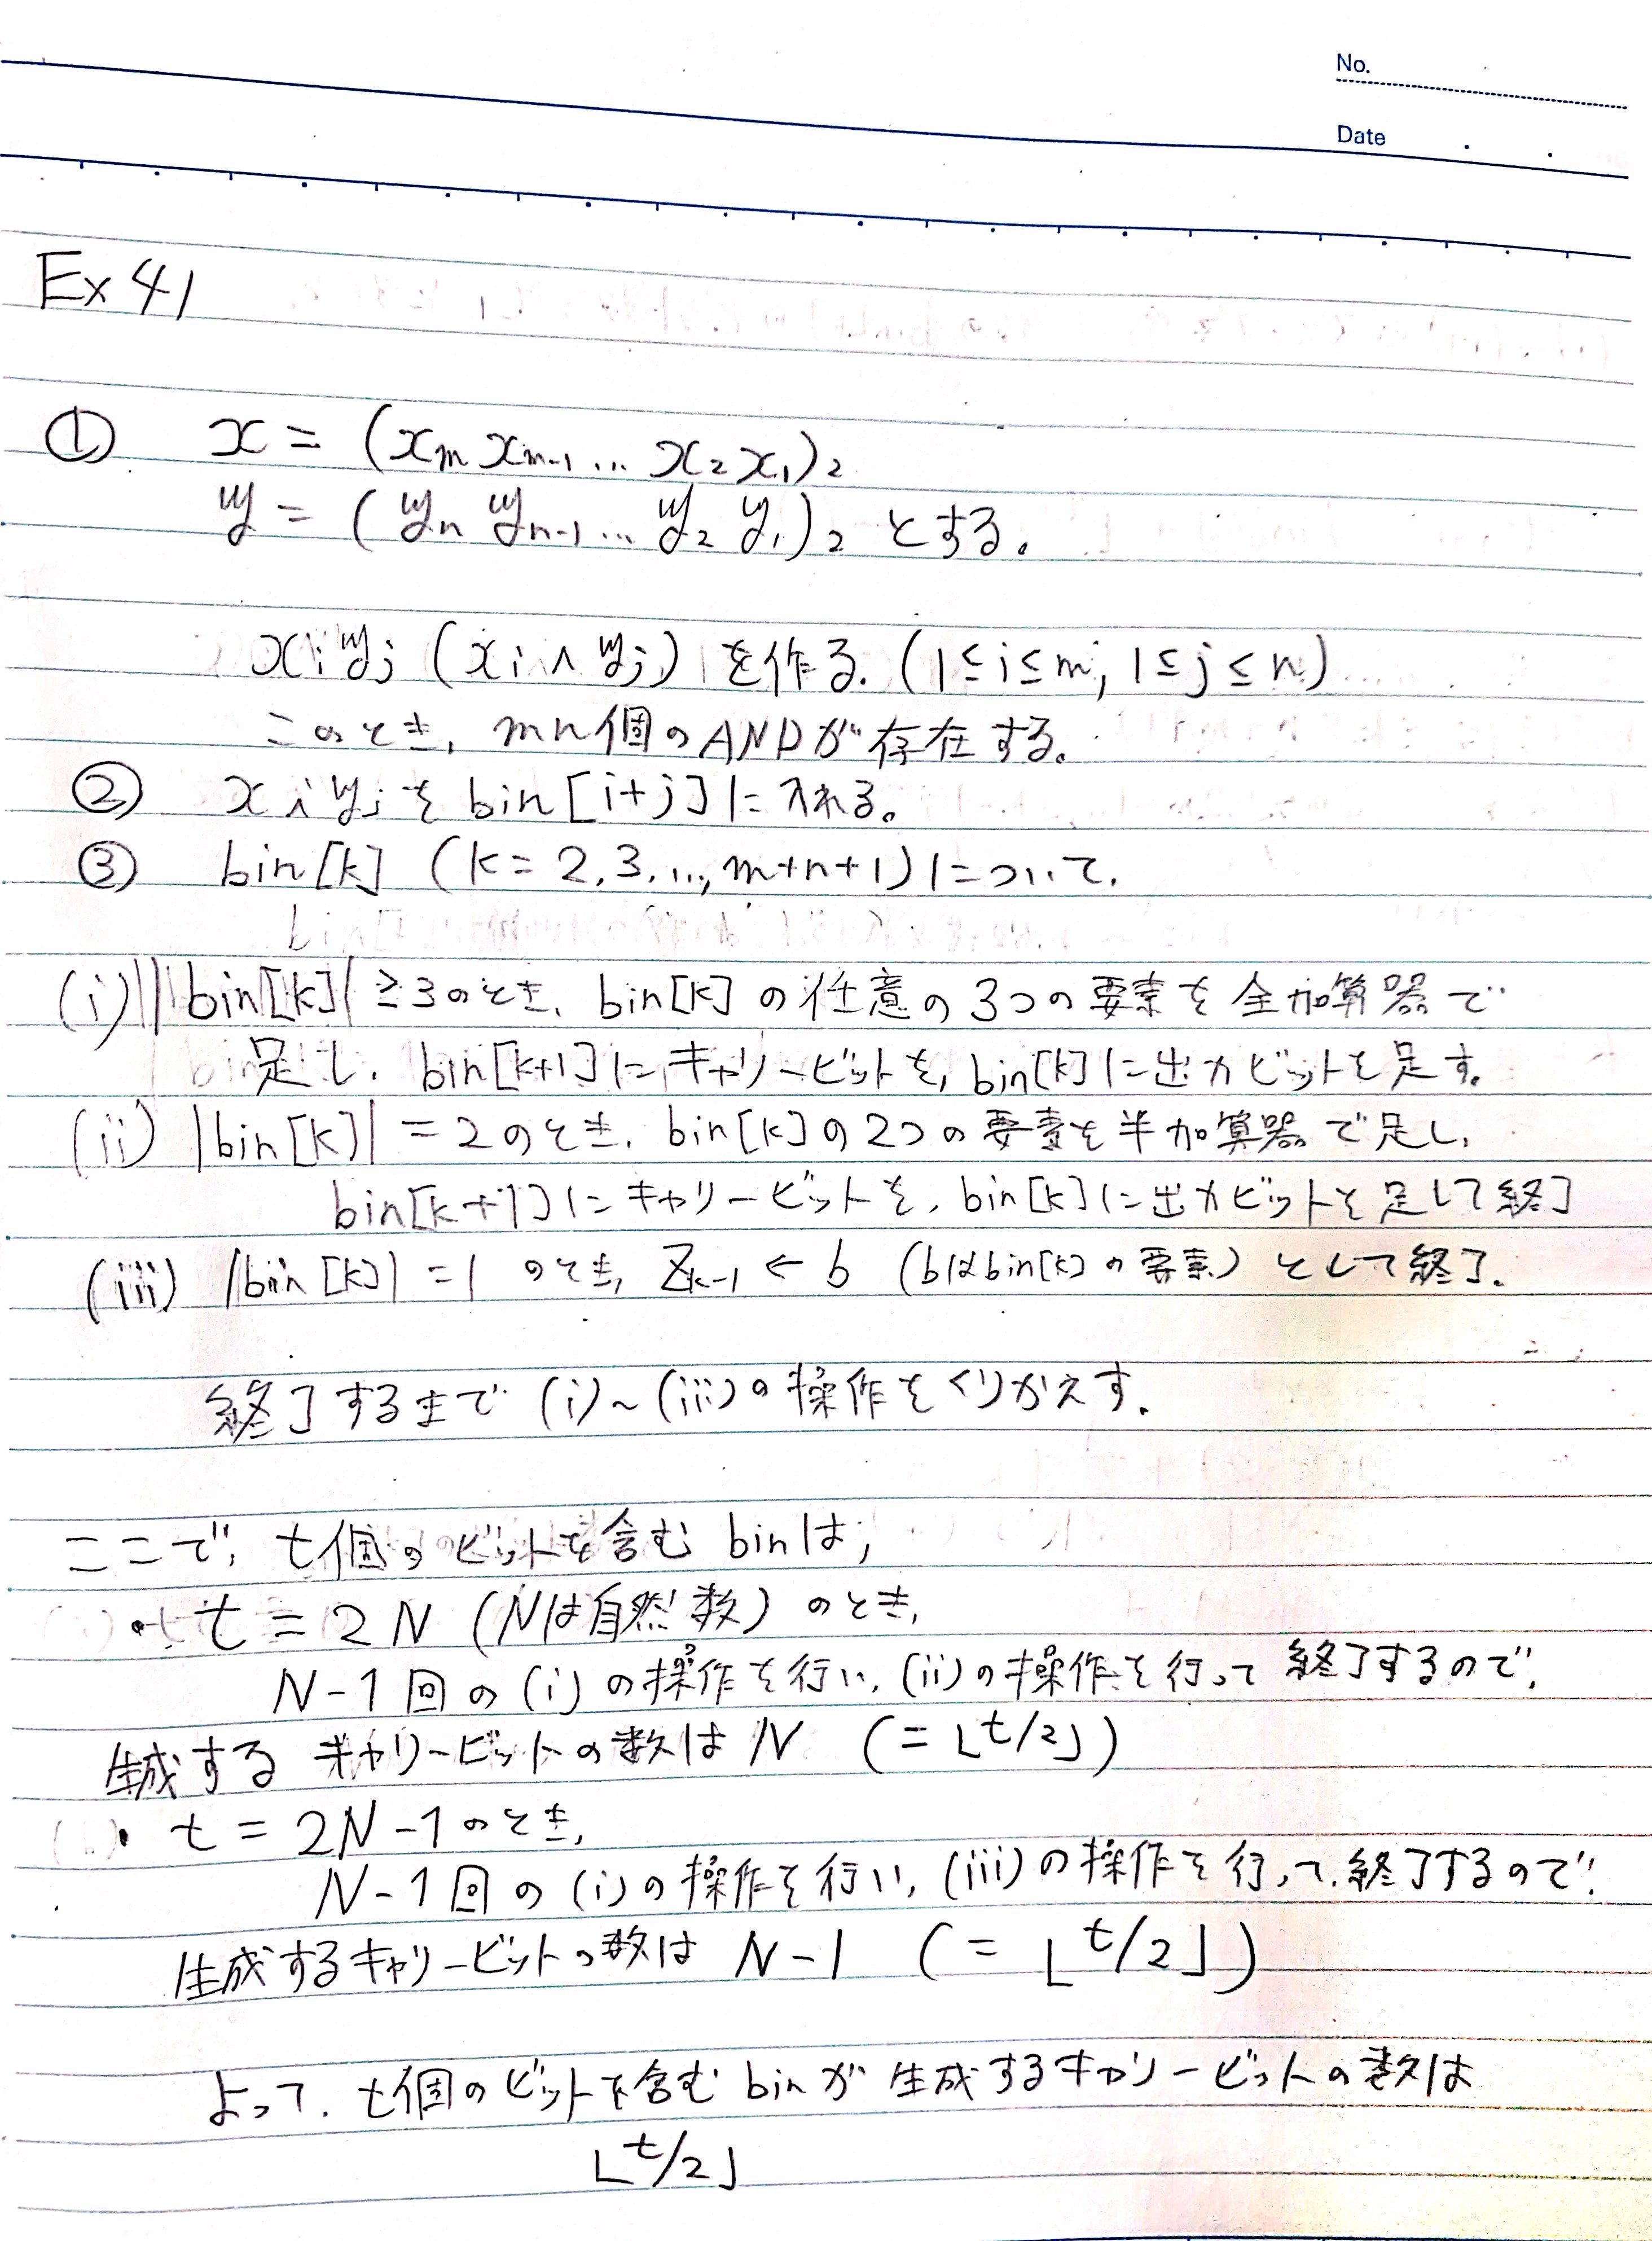 No.
Date
Ex 41
① x = (xm xm-1 … x2 x1)2
y = (yn yn-1 … y2 y1)2 とする。
xiyj (xi ∧ yj) を作る. (1≤i≤m, 1≤j≤n)
このとき, mn個のANDが存在する.
② xiyjを bin[i+j]に入れる。
③ bin[k] (k=2,3,…,m+n+1)について.
(i) |bin[k]| ≥3のとき, bin[k] の任意の3つの要素を全加算器で
足し, bin[k+1]にキャリービットを, bin[k]に出力ビットを足す.
(ii) |bin[k]| = 2のとき, bin[k]の2つの要素を半加算器で足し,
bin[k+1]にキャリービットを, bin[k]に出力ビットを足して終了
(iii) |bin[k]| = 1 のとき, Zk-1 ← b (bはbin[k]の要素) として終了.
終了するまで (i)~(iii)の操作をくりかえす.
ここで, t個のビットを含む binは,
・t = 2N (Nは自然数) のとき,
N-1回の(i)の操作を行い, (ii)の操作を行って終了するので,
生成するキャリービットの数は N (= ⌊t/2⌋)
・t = 2N-1のとき,
N-1回の(i)の操作を行い, (iii)の操作を行って終了するので,
生成するキャリービットの数は N-1 (= ⌊t/2⌋)
よって, t個のビットを含む binが 生成するキャリービットの数は
⌊t/2⌋